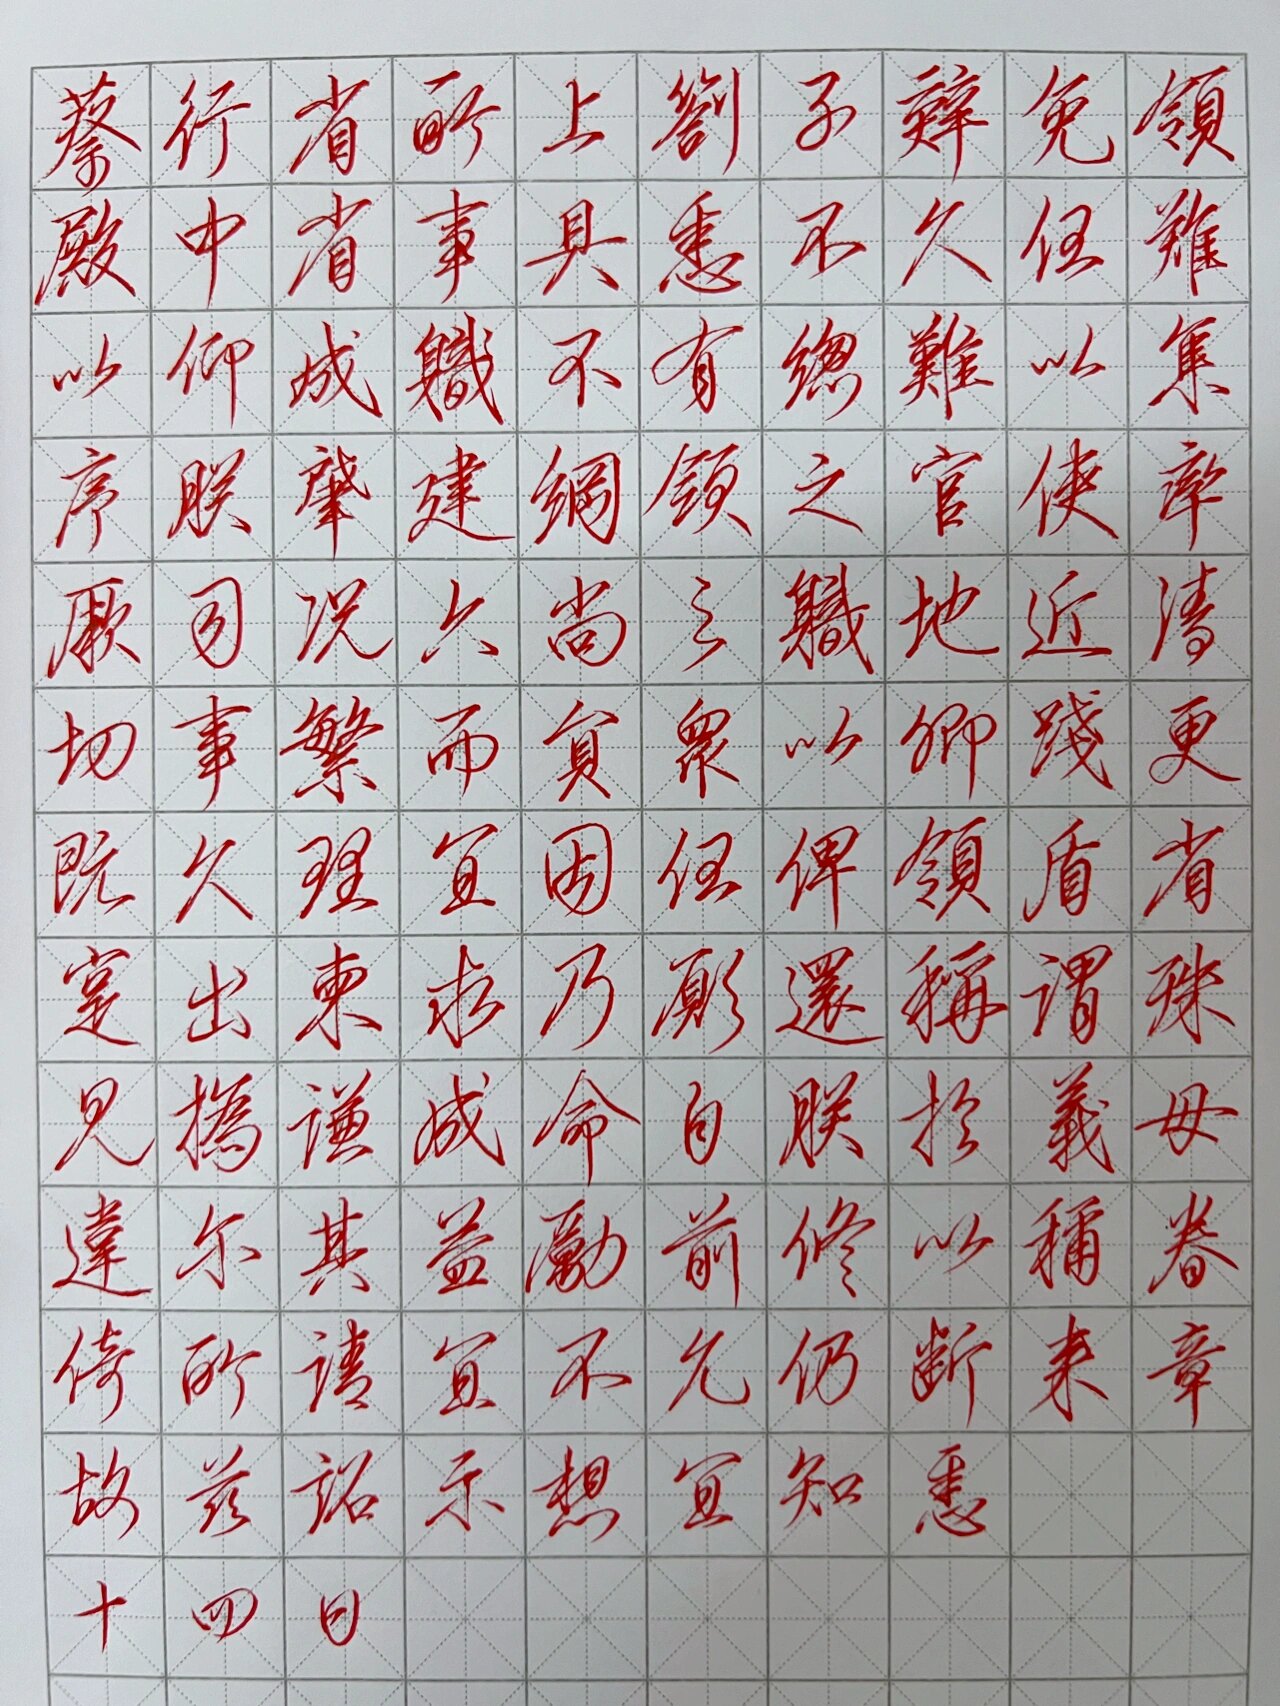 蔡行省所上劄子辭免領
殿中省事具悉不久任難
以仰成職不有總難以集
序朕肇建綱領之官使率
厥司况六尚之職地近清
切事繁而員眾以卿踐更
既久理宜因任俾領盾省
寔出柬求乃願還稱謂殊
見撝謙成命自朕於義毋
違尔其益勵前修以稱眷
倚所請宜不允仍断来章
故茲詔示想宜知悉
十四日